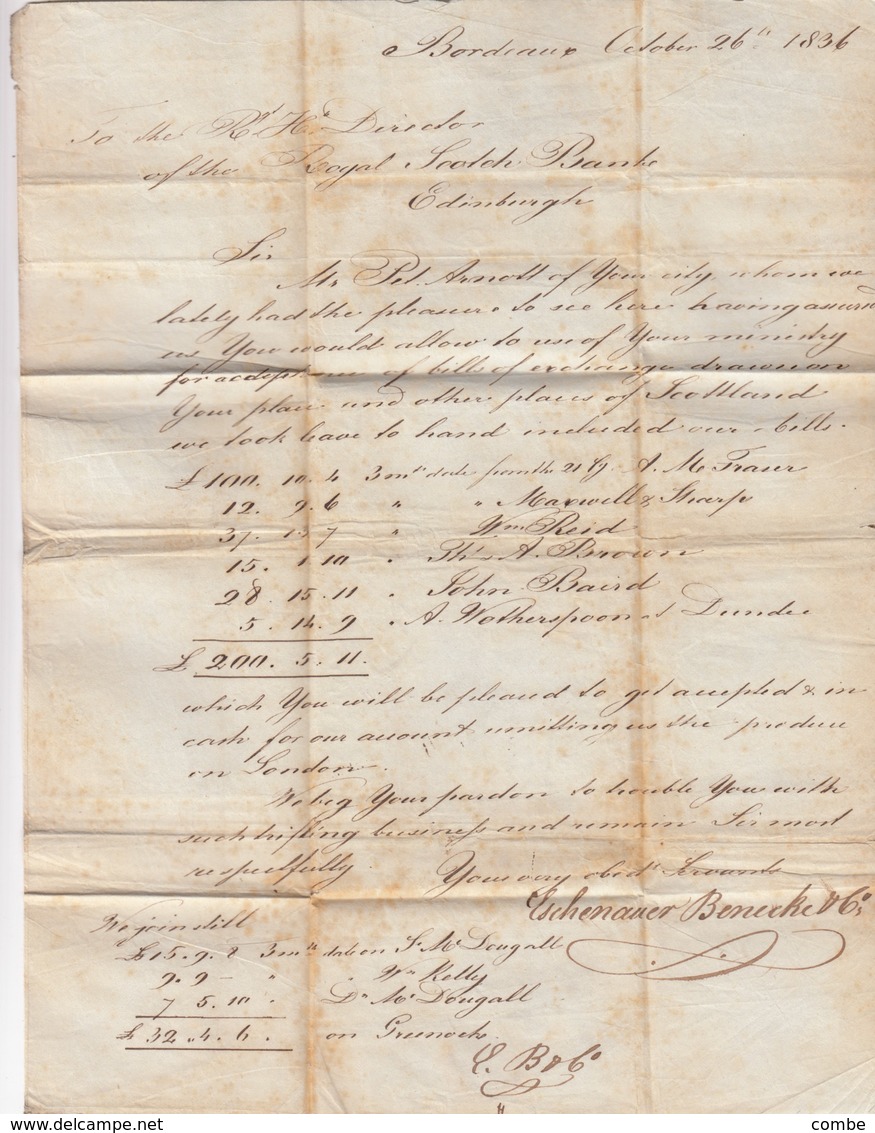 Bordeaux October 26th 1836
To the Rt. Hble Director
of the Royal Scotch Banke
Edinburgh
Sir
Mr Pet. Arnott of Your city, whom we
lately had the pleasure to see here having assured
us You would allow to use of Your ministry
for acceptance of bills of exchange drawn on
Your place and other places of Scottland
we took leave to hand included our bills.
£ 100. 10. 4 3 mths date from the 21 A. M. Fraser
12. 9. 6 " " Maxwell & Sharp
37. 13 7 " Wm Reid
15. 1 10 " Ths A. Brown
28. 15. 11 " John Baird
5. 14. 9 " A. Wotherspoon at Dundee
£ 200. 5. 11.
which You will be pleased to get accepted & in
cash for our account remitting us the produce
on London.
We beg Your pardon to trouble You with
such trifling business and remain Sir most
respectfully Your very obedt Servants
Eschenauer Benecke & Co
We join still
£ 15. 9. 8 3 mths date on Mc Dougall
9. 9 – " " Wm Kelly
7 5. 10 " Dn Mc Dougall
£ 32. 4. 6. on Greenock
E. B & Co
www.delcampe.net
combe